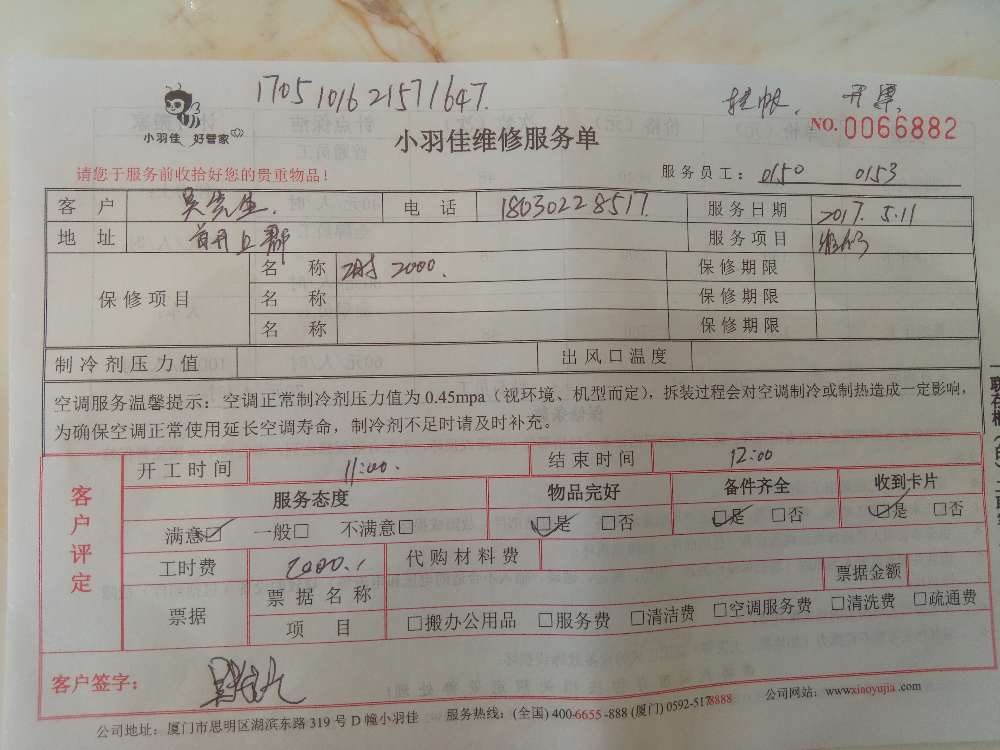 17051016 21571647.
挂帐. 开票.
小羽佳 好管家
NO. 0066882
小羽佳维修服务单
请您于服务前收拾好您的贵重物品!
服务员工: 0150 0153
客 户 吴先生. 电 话 18030228517. 服务日期 2017. 5.11
地 址 首开 服务项目 维修
保修项目 名 称 2000. 保修期限
名 称 保修期限
名 称 保修期限
制冷剂压力值 出风口温度
空调服务温馨提示: 空调正常制冷剂压力值为 0.45mpa (视环境、机型而定), 拆装过程会对空调制冷或制热造成一定影响,
为确保空调正常使用延长空调寿命, 制冷剂不足时请及时补充。
客户评定
开工时间 11:00. 结束时间 12:00
服务态度 物品完好 备件齐全 收到卡片
满意☑ 一般□ 不满意□ ☑是 □否 ☑是 □否 ☑是 □否
工时费 2000. 代购材料费
票据 票据名称 票据金额
项 目 □搬办公用品 □服务费 □清洁费 □空调服务费 □清洗费 □疏通费
客户签字:
公司地址: 厦门市思明区湖滨东路 319 号 D 幢小羽佳 服务热线: (全国) 400-6655-888 (厦门) 0592-5178888 公司网站: www.xiaoyujia.com